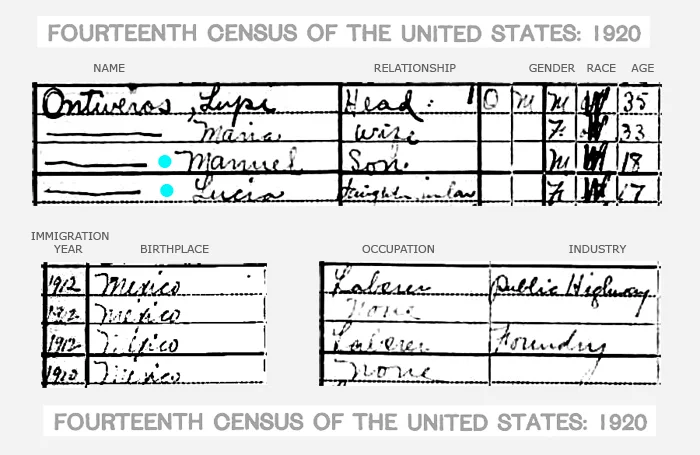 FOURTEENTH CENSUS OF THE UNITED STATES: 1920
NAME RELATIONSHIP GENDER RACE AGE
Ontiveros, Lupe Head 1 O M M W 35
Maria wife F W 33
Manuel Son M W 18
Lucia daughter in law F W 17
IMMIGRATION
YEAR BIRTHPLACE OCCUPATION INDUSTRY
1912 Mexico Laborer Public Highway
1912 Mexico None
1912 Mexico Laborer Foundry
1920 Mexico None
FOURTEENTH CENSUS OF THE UNITED STATES: 1920